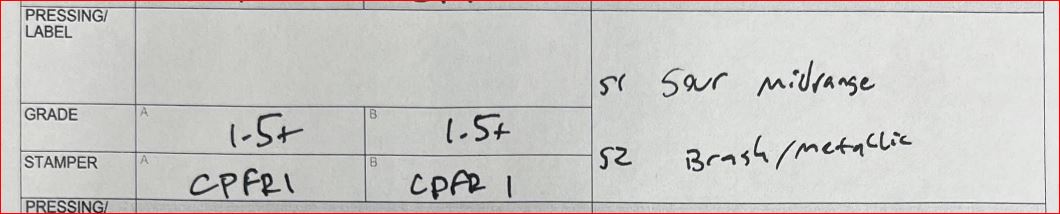 PRESSING/
LABEL
S1 Sour midrange
GRADE A 1.5+ B 1.5+
S2 Brash/metallic
STAMPER A CPFR1 B CPFR 1
PRESSING/